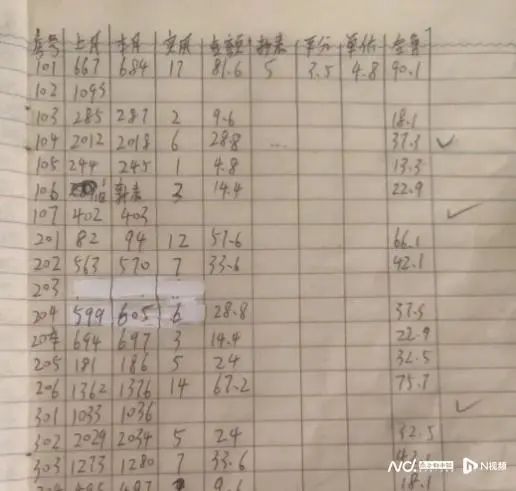 房号 上月 本月 实用 金额 抄表 平分 单价 全月
101 667 684 17 81.6 5 3.5 4.8 90.1
102 1095
103 285 287 2 9.6 18.1
104 2012 2018 6 28.8 ... 37.3 ✓
105 244 245 1 4.8 13.3
106 新表 3 14.4 22.9
107 402 403 ✓
201 82 94 12 57.6 66.1
202 563 570 7 33.6 42.1
203
204 599 605 6 28.8 37.3
694 697 3 14.4 22.9
205 181 186 5 24 32.5
206 1362 1376 14 67.2 75.7
301 1033 1036 ✓
302 2029 2034 5 24 32.5
303 1273 1280 7 33.6 42.1
9.6 18.1
N视频